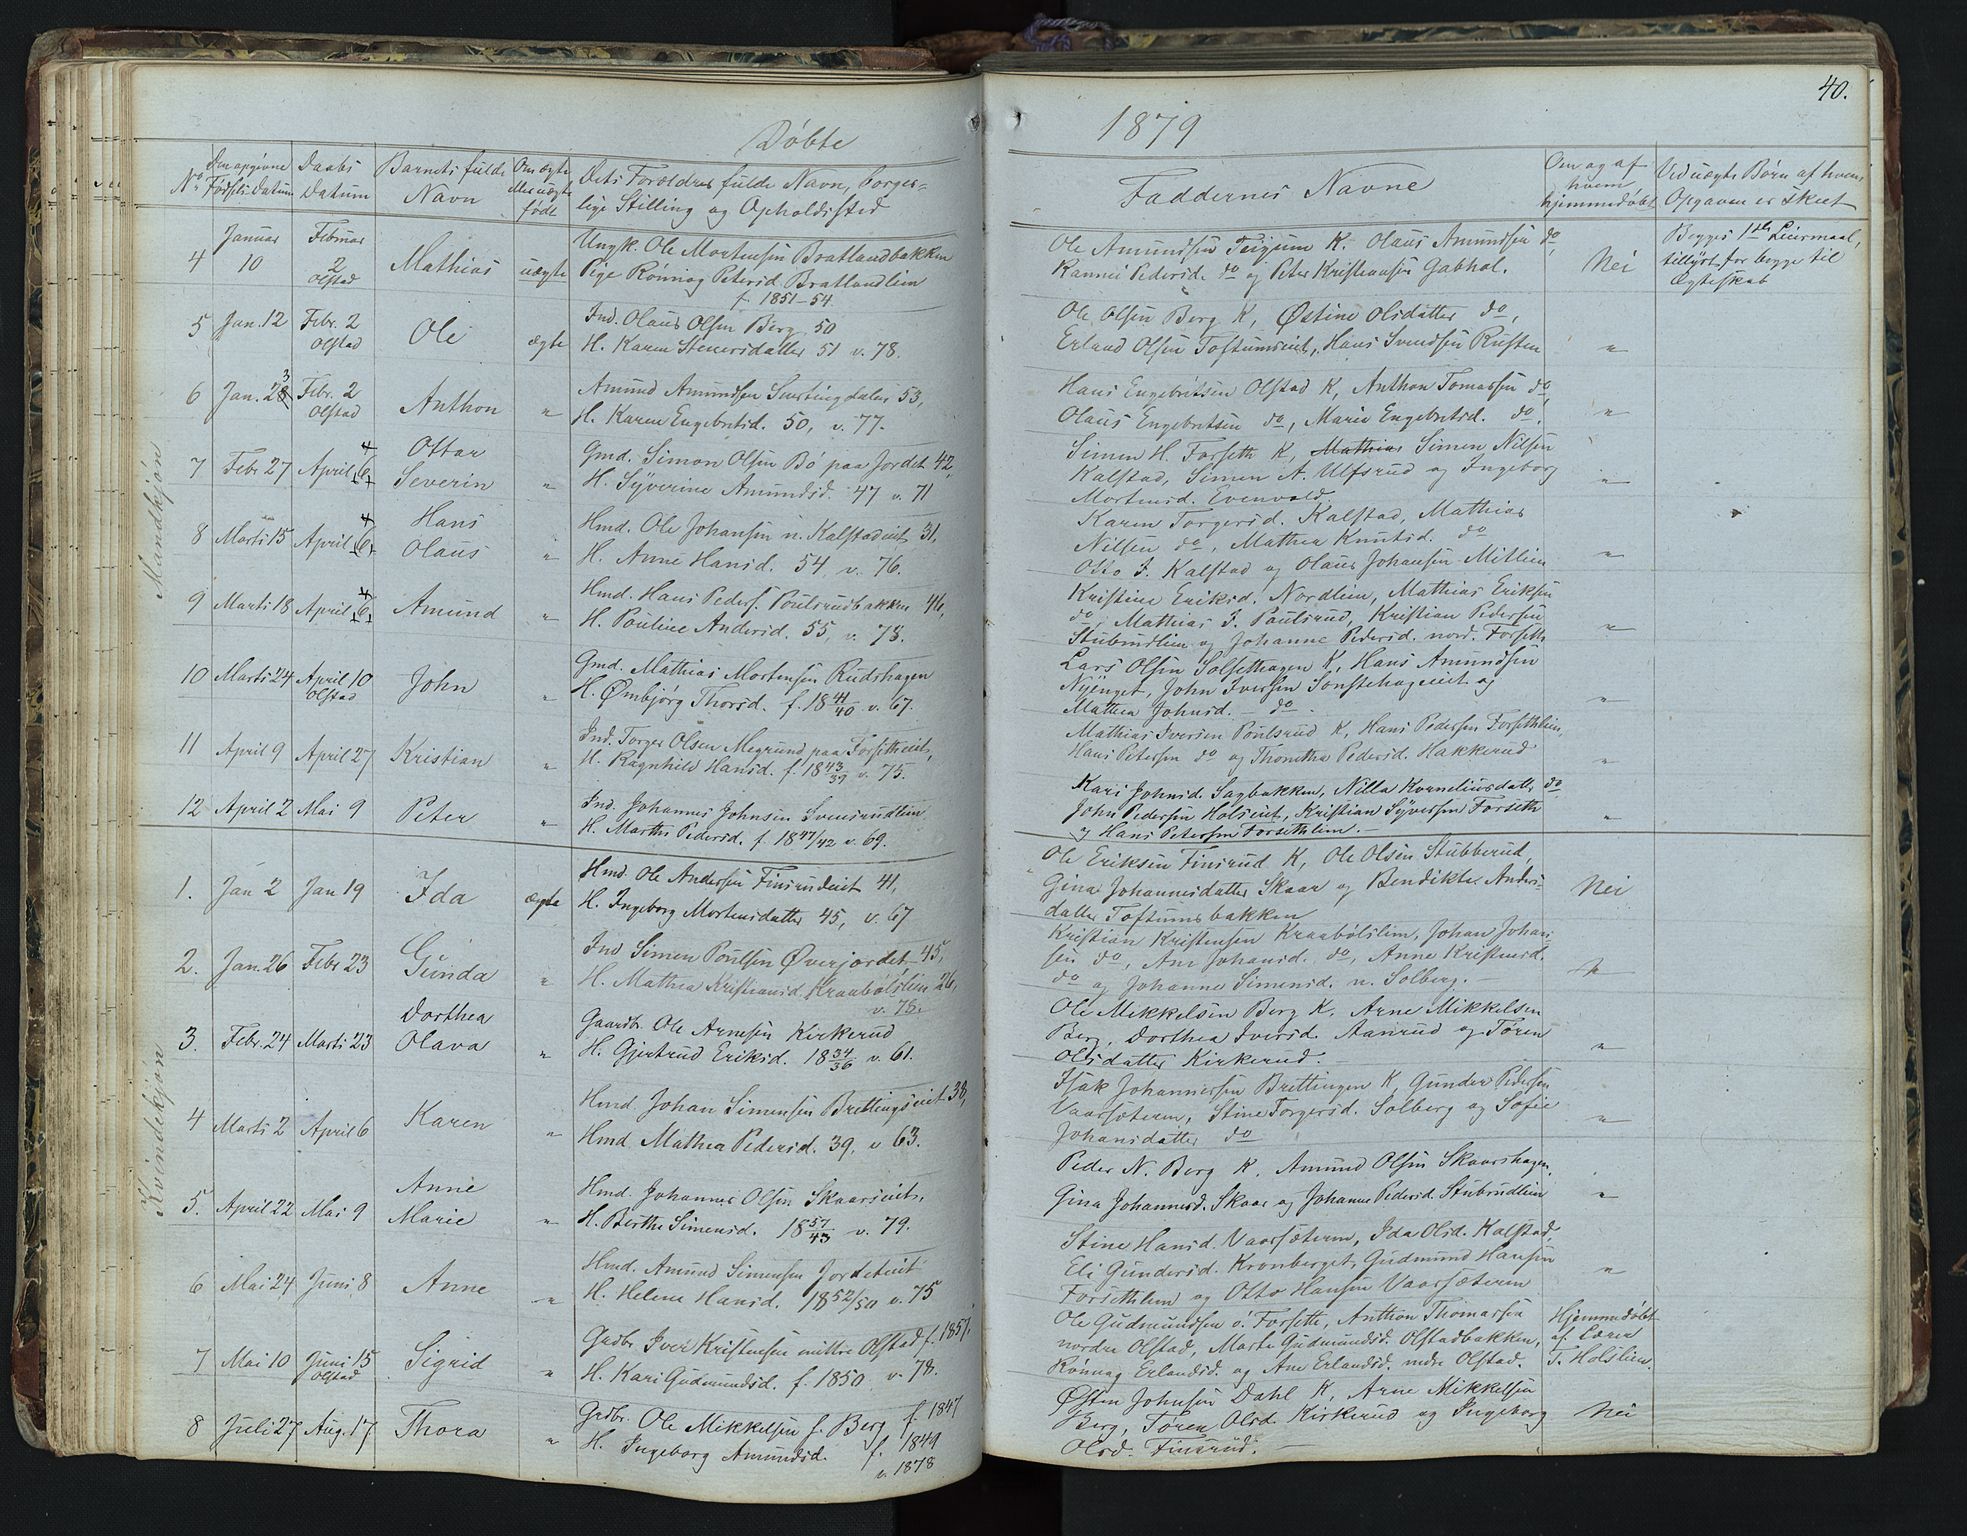 Døbte
1879
40.
No
Den opgivne Fødsels Datum
Daabs Datum
Barnets fulde Navn
Om ægte eller uægte født
Dets Forældres fulde Navn, borger-
lige Stilling og Opholdssted
Faddernes Navne
Om og af hvem hjemmedøbt
Ved uægte Børn af hvem Opgaven er skeet
Mandkjøn
4 Januar 10 Februar 2 Olstad Mathias uægte
Ungk. Ole Mortensen Bratlandbakken
Pige Rønnog Petersd. Bratlandlien
f. 1851-54
Ole Amundsen Teigum K. Olaus Amundsen do,
Rannei Pedersd. do og Peter Kristiansen Gabhol.
Nei
Begges 1ste Leiermaal,
tillyst for begge til
Ægteskab
5 Jan. 12 Febr. 2 Olstad Ole ægte
Ind. Olaus Olsen Berg 50
H. Karen Stenersdatter 51 v. 78.
Ole Olsen Berg K, Østine Olsdatter do,
Erland Olsen Toftumseiet, Hans Svendsen Rusten
"
6 Jan. 23 Febr. 2 Olstad Anthon "
Amund Amundsen Svartingdalen 53,
H. Karen Engebretsd. 50, v. 77.
Hans Engebretsen Olstad K, Anthon Tomassen do,
Olaus Engebretsen do, Marie Engebretsd. do.
"
7 Febr 27 April 4 Ottar Severin "
Gmd. Simon Olsen Bø paa Jordet 42,
H. Syverine Amundsd. 47 v. 71
Simen H. Forseth K, Mathias Simen Nilsen
Kalstad, Simen A. Ulfsrud og Ingeborg
Mortensd. Evenvold.
"
8 Marts 15 April 4 Hans Olaus "
Hmd. Ole Johansen n. Kalstadeiet 31,
H. Anne Hansd. 54 v. 76.
Karen Torgersd. Kalstad, Mathias
Nilsen do, Mathea Knutsd. do
Otto J. Kalstad og Olaus Johansen Mitlien
"
9 Marts 18 April 4 Amund "
Hmd. Hans Peders. Poulsrudbakken 46,
H. Pouline Andersd. 55, v. 78.
Kristine Eriksd. Nordlein, Mathias Eriksen
do, Mathias I. Poulsrud, Kristian Pedersen
Stubrudlien og Johanne Pedersd. nord. Forseth
"
10 Marts 24 April 10 Olstad John "
Gmd. Mathias Mortensen Rudshagen
H. Ømbjørg Thorsd. f. 18 41/40 v. 67.
Lars Olsen Solsethagen K, Hans Amundsen
Nyenget, John Iversen Sønstehageeiet og
Mathea Johnsd. do.
"
11 April 9 April 27 Kristian "
Ind. Torger Olsen Megrund paa Forsetheiet,
H. Ragnhild Hansd. f. 18 43/39 v. 75.
Mathias Iversen Poulsrud K, Hans Pedersen Forsethlien,
Hans Petersen do og Thonetha Pedersd. Hakkerud
"
12 April 2 Mai 9 Peter "
Ind. Johannes Johnsen Svensrudlien
H. Marthe Pedersd. f. 1847/42 v. 69.
Kari Johnsd. Sagbakken, Nilla Korneliusdatt. do
John Pedersen Holseiet, Kristian Syversen Forseth
og Hans Petersen Forsethlien.
"
Kvindekjøn
1. Jan 2 Jan 19 Ida ægte
Hmd. Ole Andersen Finsrudeiet 41,
H. Ingeborg Mortensdatter 45, v. 67
Ole Eriksen Finsrud K, Ole Olsen Stubberud,
Gina Johannesdatter Skaar og Bendikte Anders-
datter Toftumsbakken
Nei
2. Jan. 26 Febr 23 Gunda "
Ind Simen Poulsen Øverjordet 45,
H. Mathea Kristiansd. Kraabølslien 26,
v. 78.
Kristian Kristensen Kraabølslien, Johan Johan-
sen do, Ane Johansd. do, Anne Kristensd.
do og Johanne Simensd. n. Solberg.
"
3. Febr. 24 Marts 23 Dorthea Olava "
Gaardbr. Ole Arnesen Kirkerud
H. Gjertrud Eriksd. 18 34/36 v. 61.
Ole Mikkelsen Berg K, Arne Mikkelsen
Berg, Dorthea Iversd. Aanrud og Tøren
Olsdatter Kirkerud.
"
4 Marts 2 April 6 Karen "
Hmd. Johan Simensen Brettingseiet 38,
Hmd Mathea Pedersd. 39, v 63.
Isak Johannessen Brettingen K, Gunder Pedersen
Vaarsæteren, Stine Torgersd. Solberg og Sofie
Johansdatter do
"
5. April 22 Mai 9 Anne Marie "
Hmd. Johannes Olsen Skaarseiet,
H. Berthe Simensd. 18 57/43 v. 79.
Peder N. Berg K. Amund Olsen Skaarshagen,
Gina Johannesd. Skaar og Johanne Pedersd. Stubrudlien
"
6 Mai 24 Juni 8 Anne "
Hmd. Amund Simensen Jordeteiet
H. Helene Hansd. 1852/50 v. 75
Stine Hansd. Vaarsæteren, Ida Olsd. Kalstad,
Eli Gundersd. Kronberget, Gudmund Hansen
Forsethlien og Otto Hansen Vaarsæteren
"
7 Mai 10 Juni 15 Olstad Sigrid "
Grdbr Iver Kristensen mittre Olstad f. 1851,
H. Kari Gudmundsd. f. 1850 v. 78.
Ole Gudmundsen ø. Forseth, Anthon Thomassen
nordre Olstad, Marte Gudmundsd. Olstadbakken,
Rønnog Erlandsd. og Ane Erlandsd. nedre Olstad.
Hjemmedøbt
af Lærer
T. Holslien.
8 Juli 27 Aug. 17 Thora "
Grdbr. Ole Mikkelsen s. Berg f. 1847
H. Ingeborg Amundsd. f. 1849
v. 1878
Østen Johnsen Dahl K, Arne Mikkelsen
Berg, Tøren Olsd. Kirkerud og Ingeborg
Olsd. Finsrud.
Nei